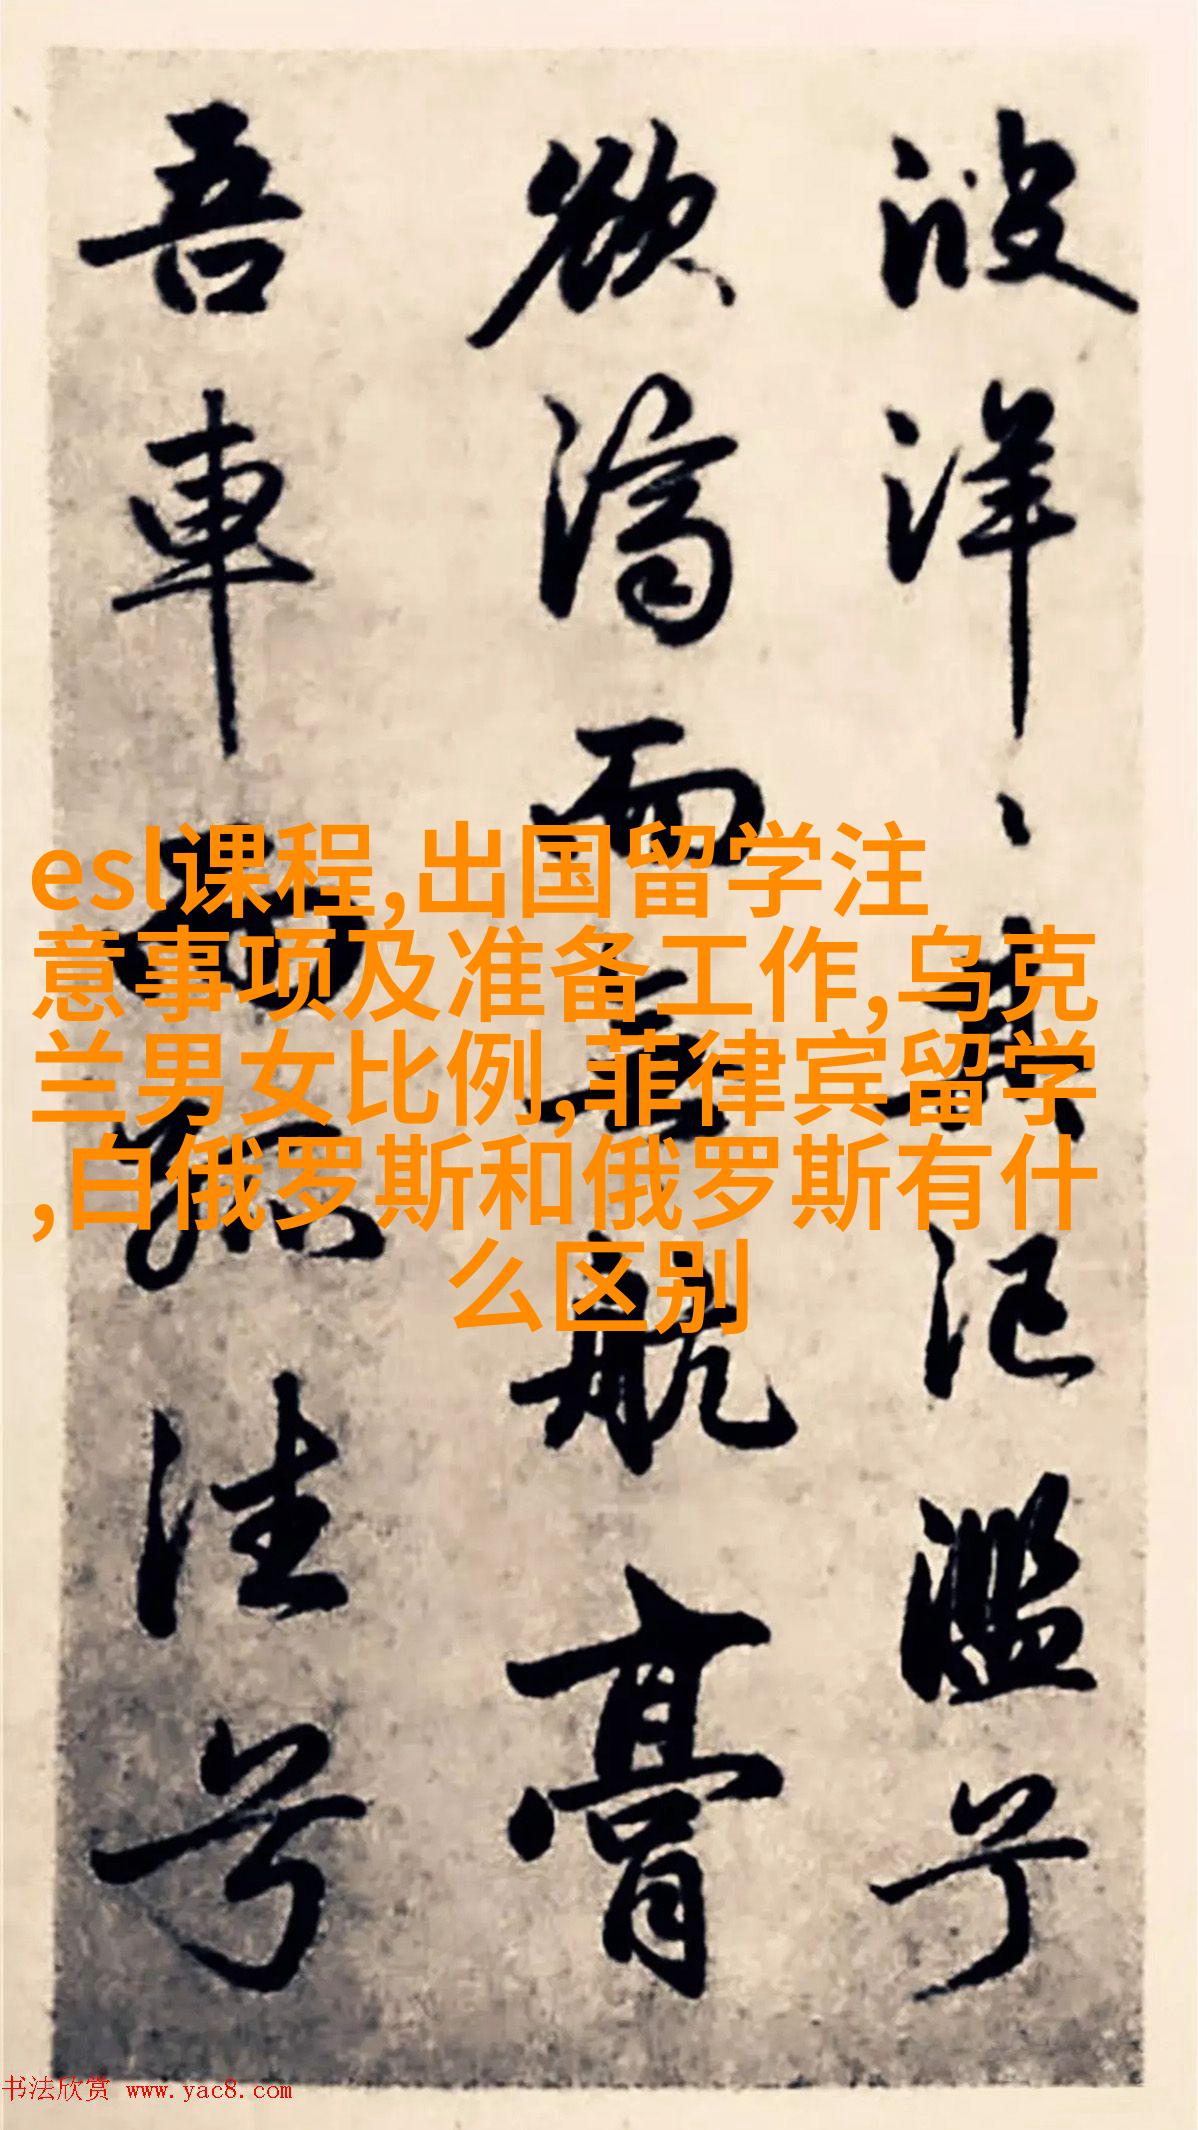 波洋丶其氾濫兮
欲濟而無航膏
吾車而
法兮
esl课程,出国留学注
意事项及准备工作,乌克
兰男女比例,菲律宾留学
,白俄罗斯和俄罗斯有什
么区别
书法欣赏 www.yac8.com